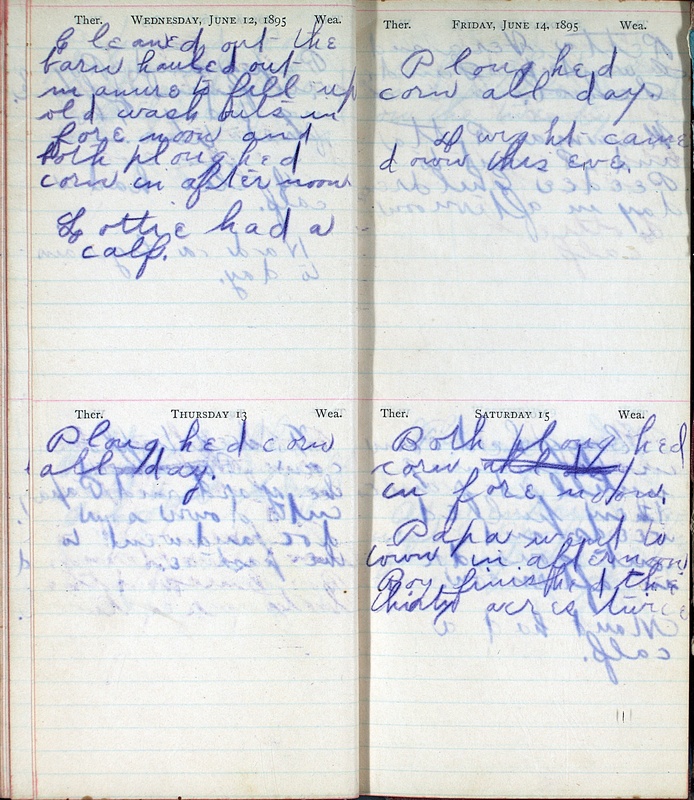 Ther. Wednesday, June 12, 1895 Wea.
Cleaned out the
barn hauled out
manure to fill up
old wash outs in
fore noon and
both ploughed
corn in after noon
Lottie had a
calf.
Ther. Thursday 13 Wea.
Ploughed corn
all day.
Ther. Friday, June 14, 1895 Wea.
Ploughed
corn all day.
Dwight came
down this eve.
Ther. Saturday 15 Wea.
Both ploughed
corn all day
in fore noon.
Papa went to
town in afternoon
Roy finished the
thirty acres twice